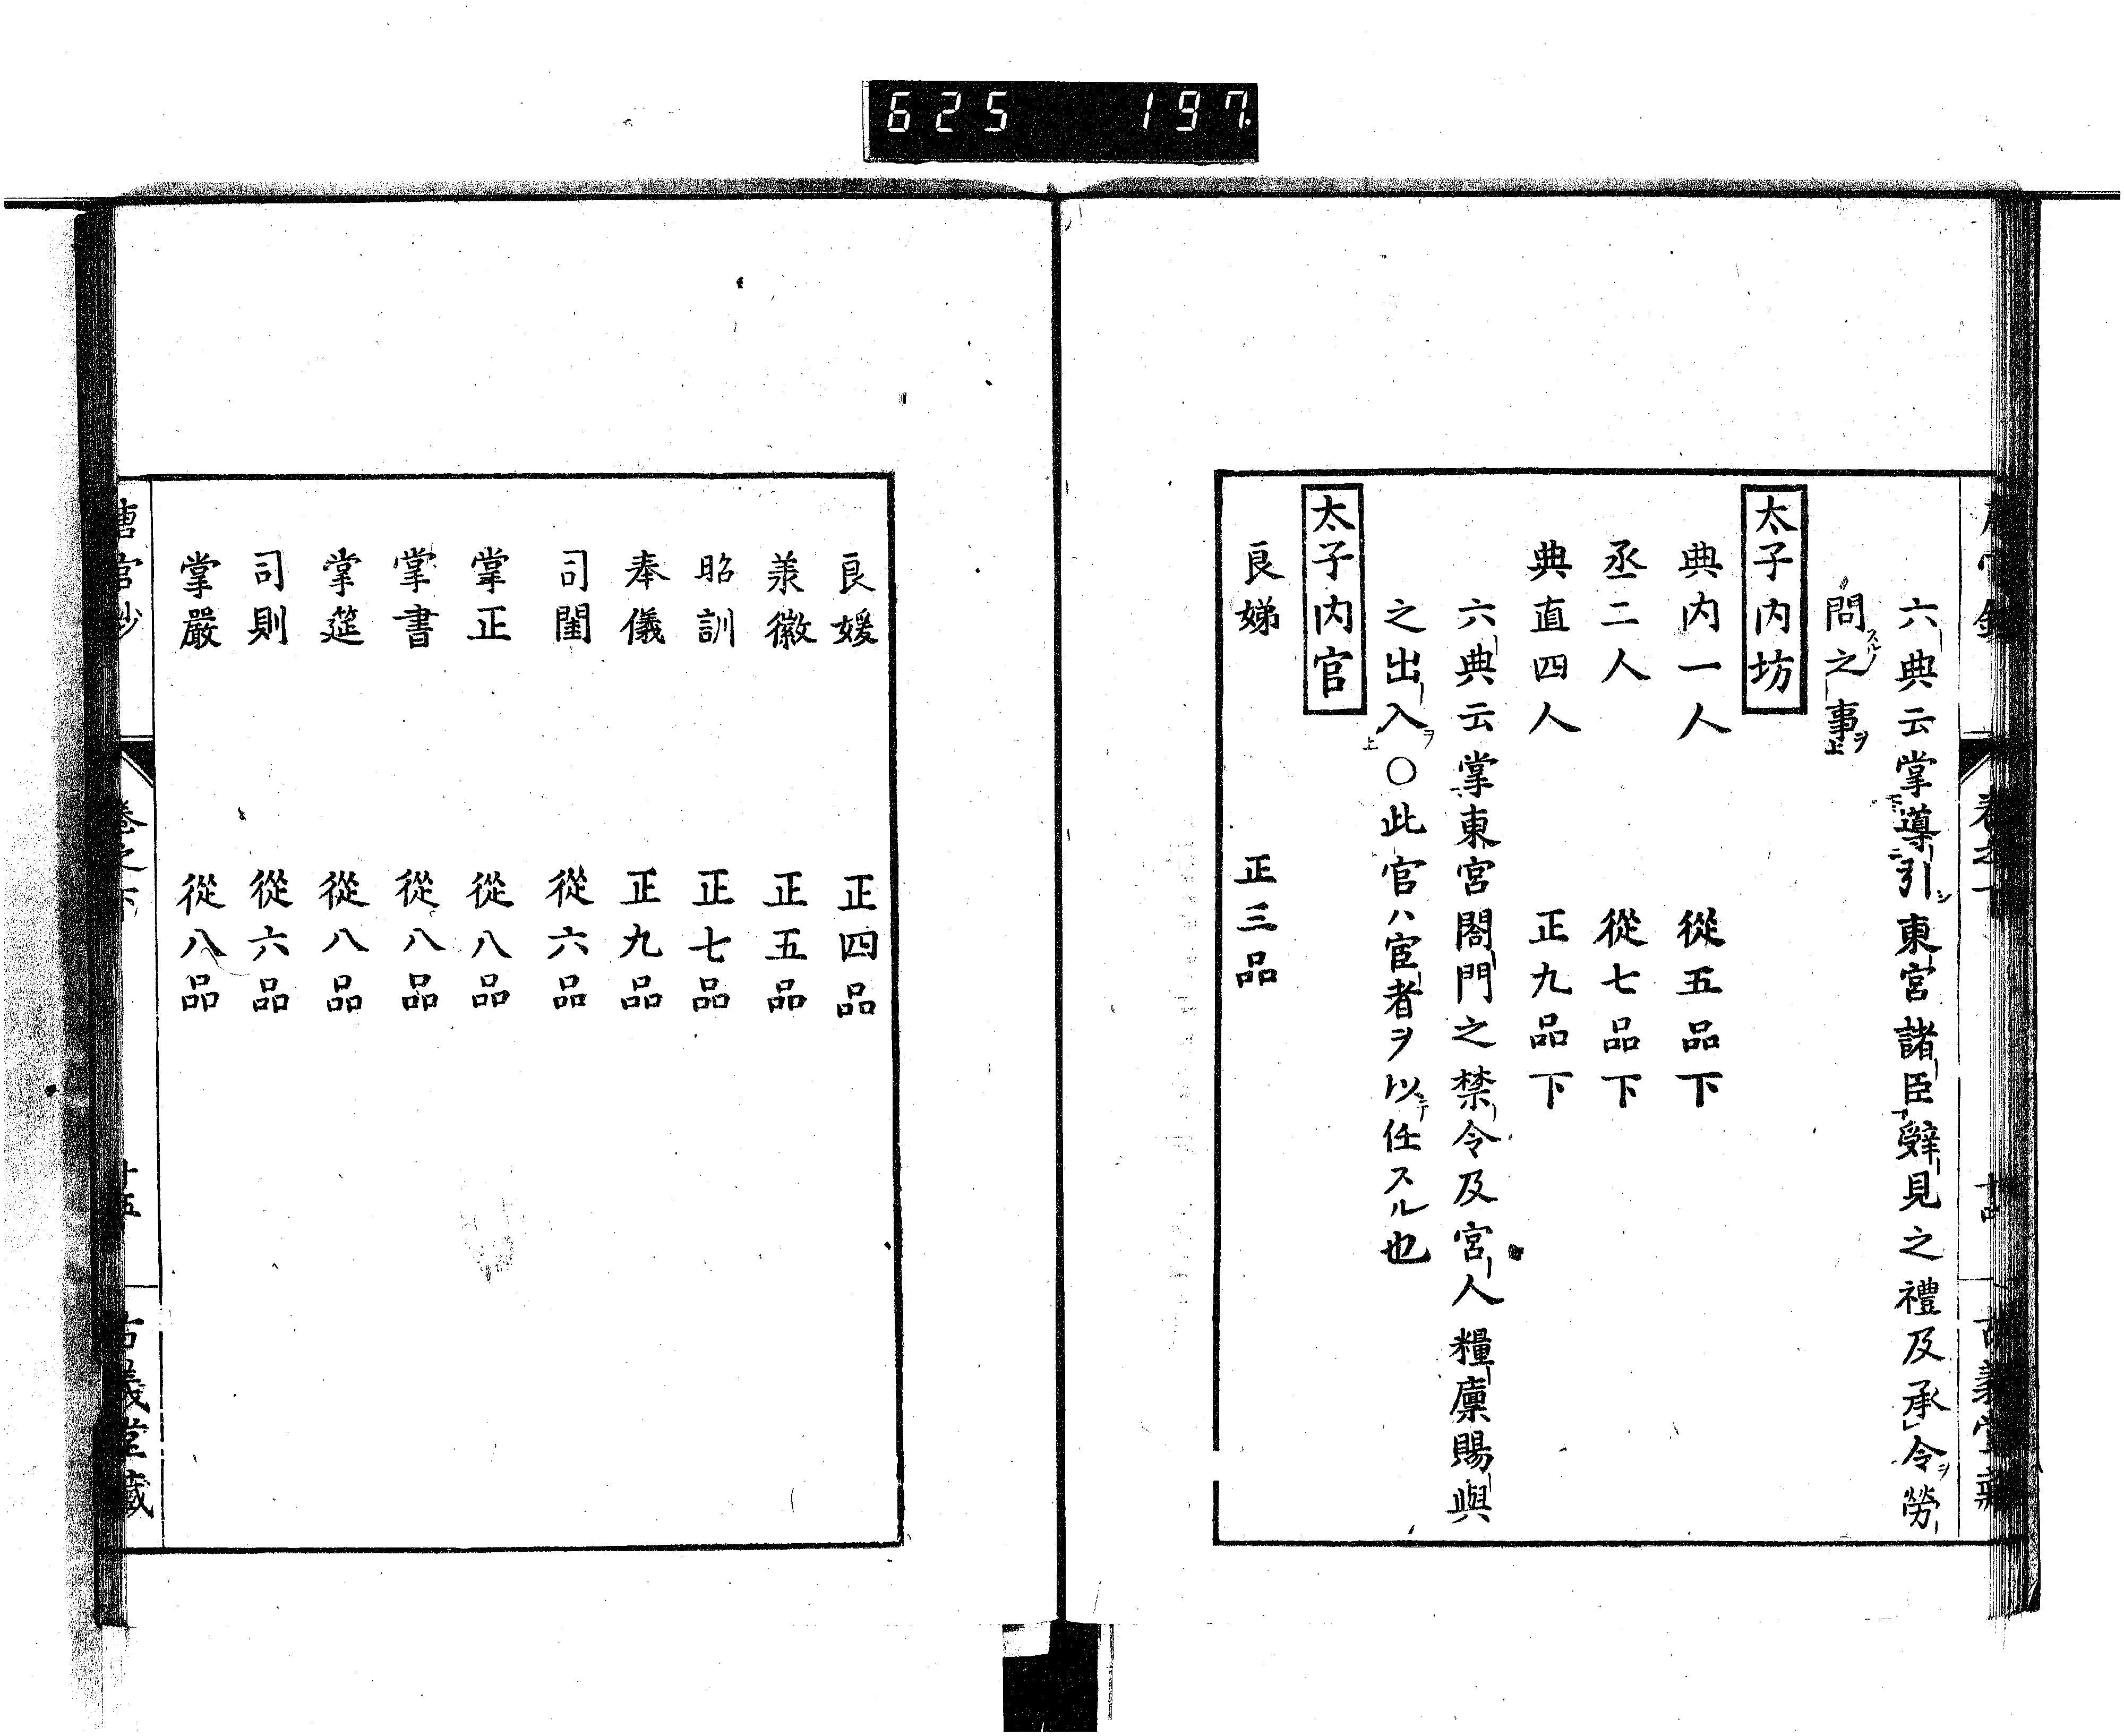 625 197
六典云掌導引東宮諸臣辭見之禮及承令勞
問之事
太子内坊
典内一人 從五品下
丞二人 從七品下
典直四人 正九品下
六典云掌東宮閤門之禁令及宮人糧廩賜與
之出入○此官ハ宦者ヲ以任スル也
太子内官
良娣 正三品
良媛 正四品
羕徽 正五品
昭訓 正七品
奉儀 正九品
司閨 從六品
掌正 從八品
掌書 從八品
掌筵 從八品
司則 從六品
掌嚴 從八品
唐官鈔 卷之下 十五 古義堂藏